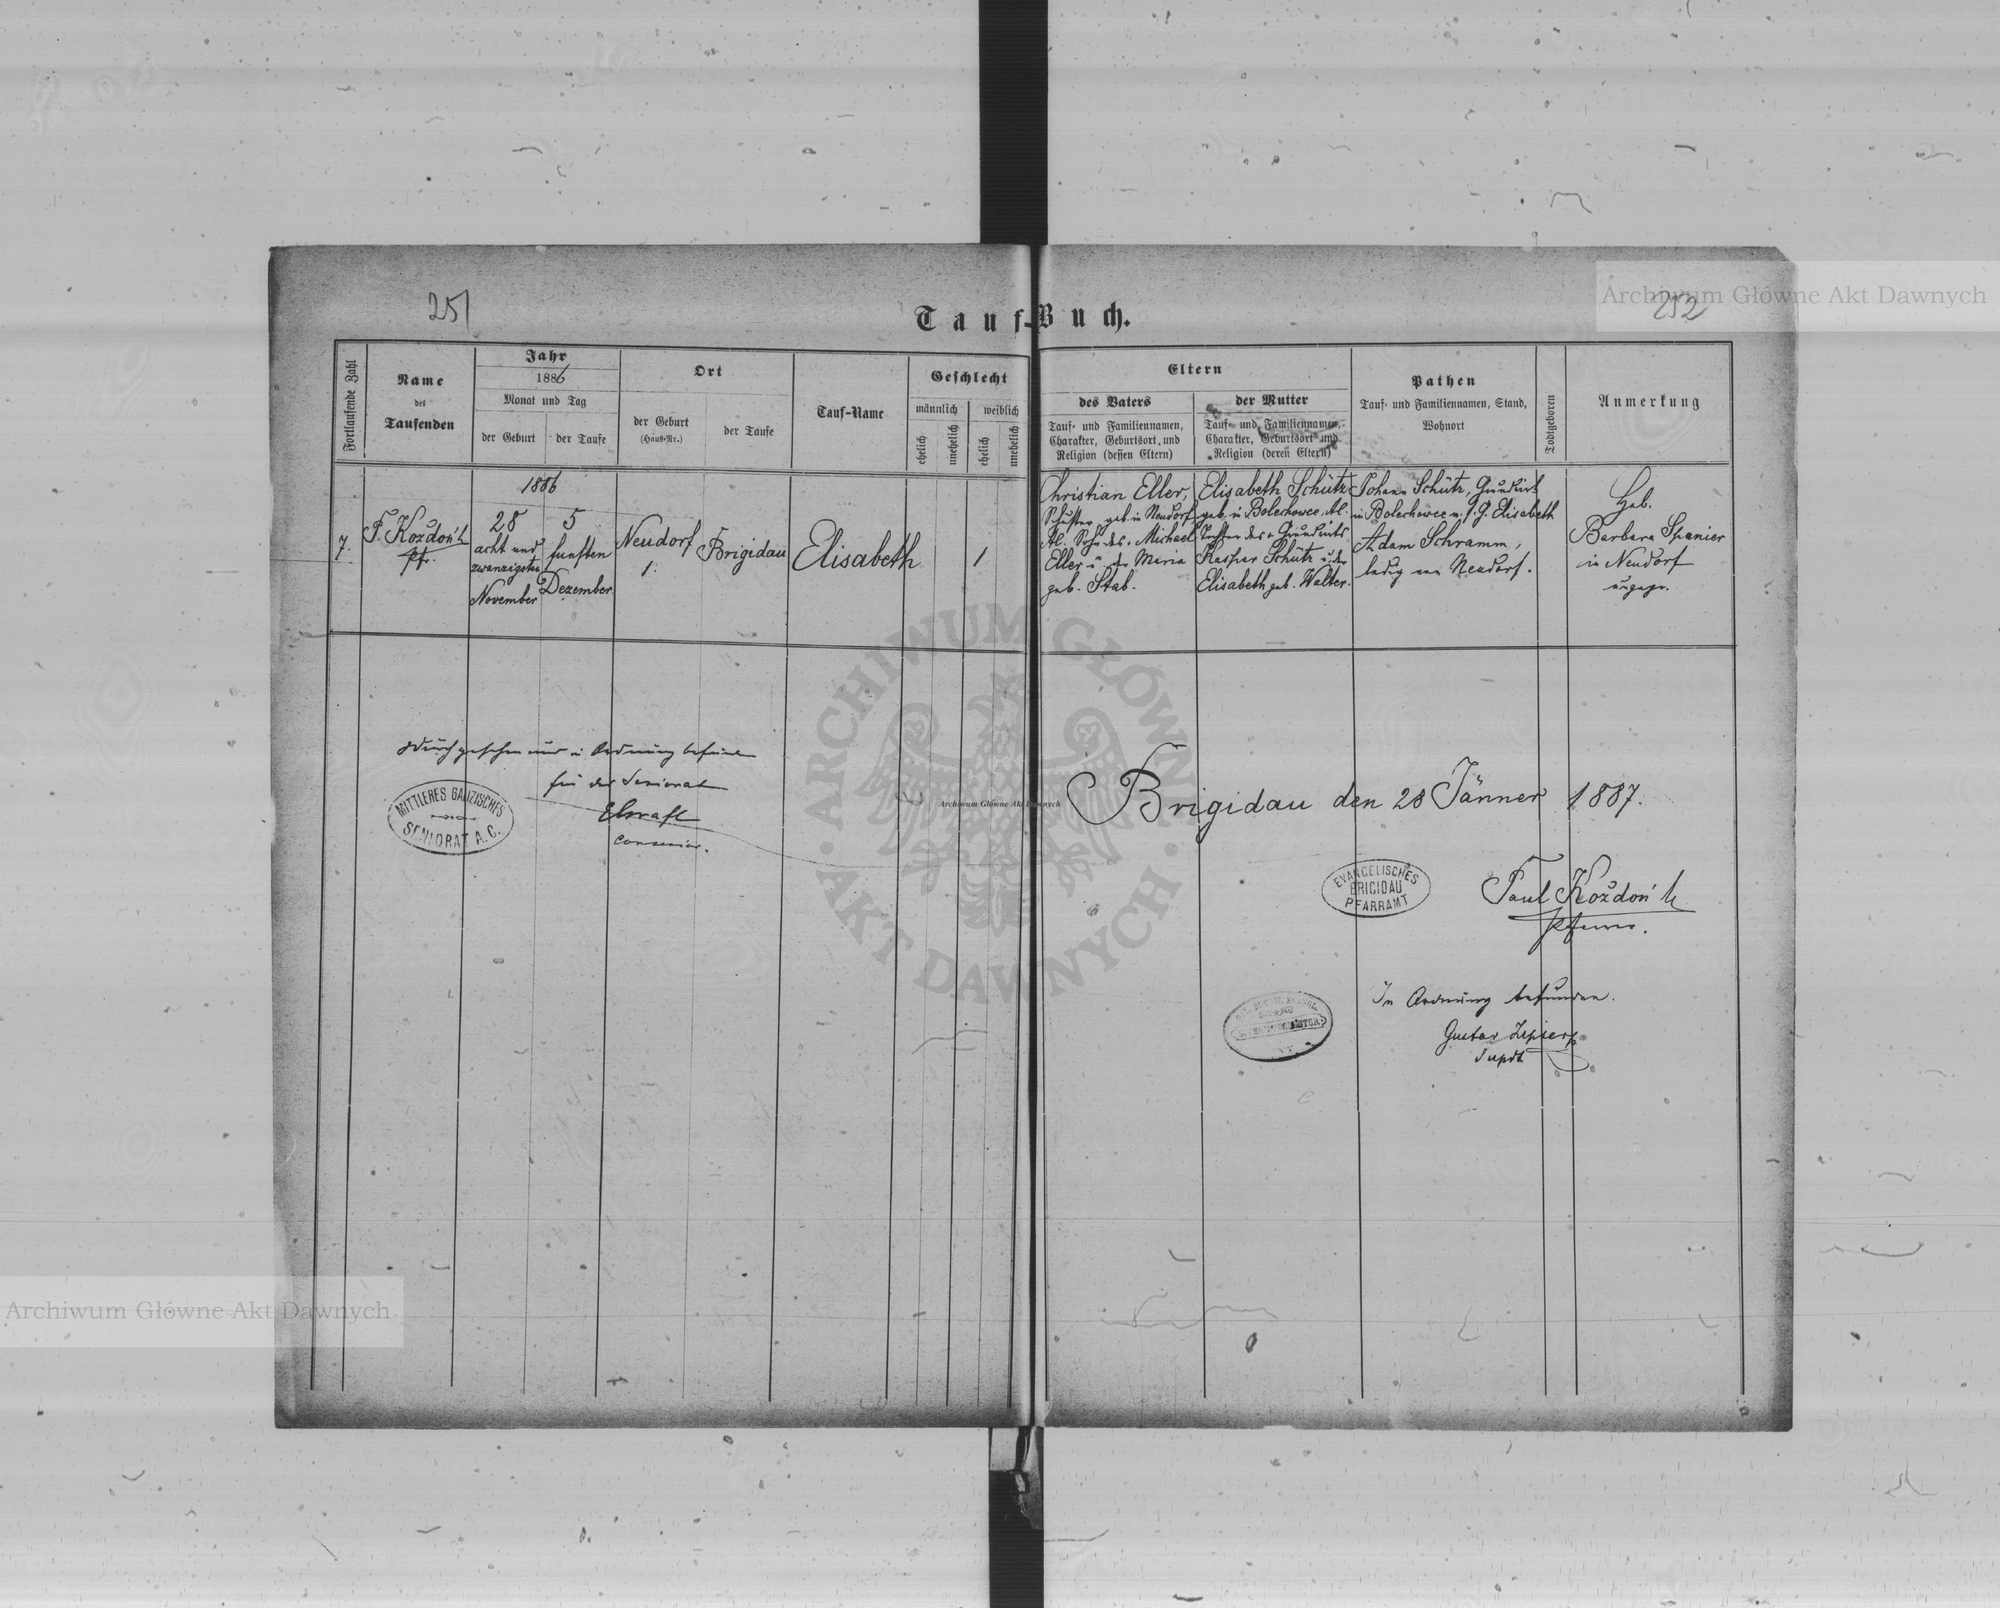 251
252
Tauf-Buch.
Fortlaufende Zahl
Name
des
Taufenden
Jahr
1886
Monat und Tag
der Geburt
der Taufe
Ort
der Geburt
(Haus-Nr.)
der Taufe
Tauf-Name
Geschlecht
männlich
weiblich
ehelich
unehelich
ehelich
unehelich
Eltern
des Vaters
Tauf- und Familiennamen,
Charakter, Geburtsort und
Religion (dessen Eltern)
der Mutter
Tauf- und Familiennamen,
Charakter, Geburtsort und
Religion (deren Eltern)
Pathen
Tauf- und Familiennamen, Stand,
Wohnort
Todtgeboren
Anmerkung
1886
7.
Kozdoń
28
acht und
zwanzigsten
November
5
funften
Dezember
Neudorf
1.
Brigidau
Elisabeth
1
Christian Eller,
Schuster geb. in Neudorf
Al. Sohn des Michael
Eller u. der Maria
geb. Stab.
Elisabeth Schütz
geb. in Bolechowce Al.
Tochter des Grundwirts
Kaspar Schütz u. der
Elisabeth geb. Walter.
Johann Schütz, Grundwirt
in Bolechowce u. s. G. Elisabeth
Adam Schramm,
ledig aus Neudorf.
Heb.
Barbara Spanier
in Neudorf
ungepr.
Durchgesehen und in Ordnung befunden
für das Seniorat
consenior.
MITTLERES GALIZISCHES
SENIORAT A.C.
Brigidau den 28 Jänner 1887.
EVANGELISCHES
BRIGIDAU
PFARRAMT
Paul Kozdoń
Pfarrer.
In Ordnung befunden.
Gustav
Supdt
Archiwum Główne Akt Dawnych
Archiwum Główne Akt Dawnych
Archiwum Główne Akt Dawnych
ARCHIWUM GŁÓWNE
AKT DAWNYCH